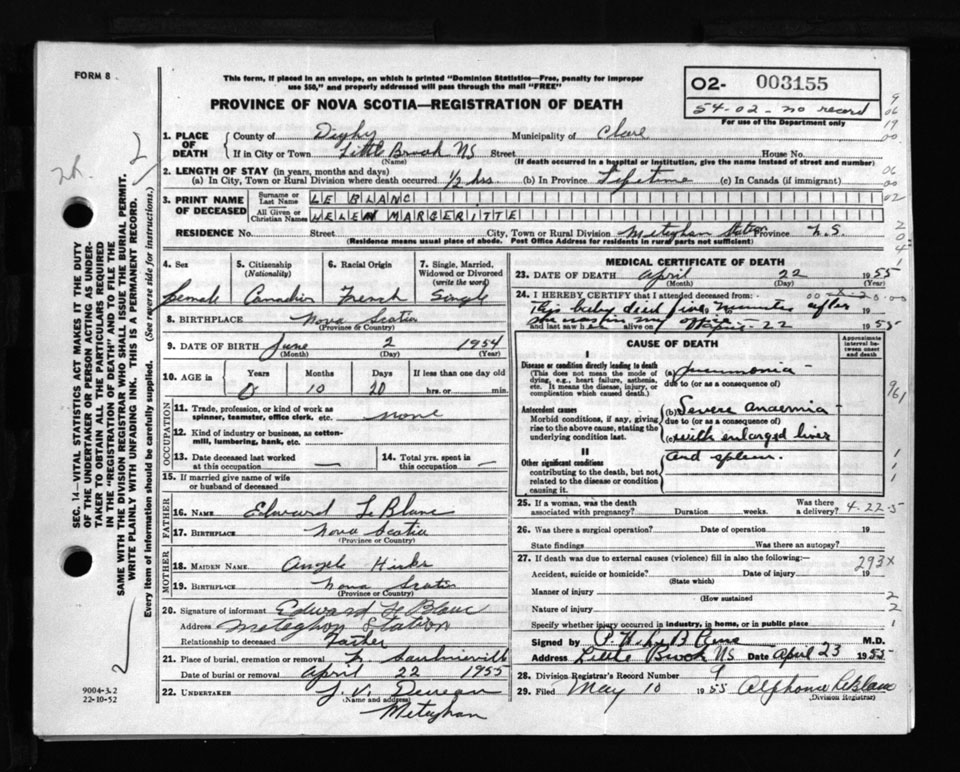 FORM 8
This form, if placed in an envelope, on which is printed "Dominion Statistics—Free, penalty for improper
use $50," and properly addressed will pass through the mail "FREE"
PROVINCE OF NOVA SCOTIA—REGISTRATION OF DEATH
O2- 003155
54-02-no record
For use of the Department only
1. PLACE OF DEATH County of Digby Municipality of Clare
If in City or Town Little Brook NS Street House No.
(Name) (If death occurred in a hospital or institution, give the name instead of street and number)
2. LENGTH OF STAY (in years, months and days)
(a) In City, Town or Rural Division where death occurred 1/2 hrs. (b) In Province Lifetime (c) In Canada (if immigrant)
3. PRINT NAME OF DECEASED Surname or Last Name LE BLANC
All Given or Christian Names HELEN MARGERITTE
RESIDENCE No. Street City, Town or Rural Division Meteghan Station Province N.S.
(Residence means usual place of abode. Post Office Address for residents in rural parts not sufficient)
4. Sex 5. Citizenship (Nationality) 6. Racial Origin 7. Single, Married, Widowed or Divorced (write the word)
female Canadian French Single
8. BIRTHPLACE Nova Scotia
(Province & Country)
9. DATE OF BIRTH June 2 1954
(Month) (Day) (Year)
10. AGE in Years Months Days If less than one day old
0 10 20 hrs. or min.
OCCUPATION
11. Trade, profession, or kind of work as spinner, teamster, office clerk, etc. none
12. Kind of industry or business, as cotton-mill, lumbering, bank, etc.
13. Date deceased last worked at this occupation — 14. Total yrs. spent in this occupation —
15. If married give name of wife or husband of deceased
FATHER
16. NAME Edward LeBlanc
17. BIRTHPLACE Nova Scotia
(Province or Country)
MOTHER
18. MAIDEN NAME Angele
19. BIRTHPLACE Nova Scotia
(Province or Country)
20. Signature of informant Edward LeBlanc
Address Meteghan Station
Relationship to deceased Father
21. Place of burial, cremation or removal Saulnierville
Date of burial or removal April 22 1955
22. UNDERTAKER J. V.
(Name and address) Meteghan
MEDICAL CERTIFICATE OF DEATH
23. DATE OF DEATH April 22 1955
(Month) (Day)
24. I HEREBY CERTIFY that I attended deceased from
This baby died five minutes after 19
she was in my office
and last saw her alive on April 22 1955
CAUSE OF DEATH
Approximate interval between onset and death
I
Disease or condition directly leading to death
(This does not mean the mode of dying, e.g., heart failure, asthenia, etc. It means the disease, injury, or complication which caused death.)
(a) Pneumonia
due to (or as a consequence of)
Antecedent causes
Morbid conditions, if any, giving rise to the above cause, stating the underlying condition last.
(b) Severe anaemia
due to (or as a consequence of)
(c) with enlarged liver
II
Other significant conditions
contributing to the death, but not related to the disease or condition causing it.
and spleen.
25. If a woman, was the death associated with pregnancy? Duration weeks. Was there a delivery?
4-22-5
26. Was there a surgical operation? Date of operation 19
State findings Was there an autopsy?
27. If death was due to external causes (violence) fill in also the following:—
293X
Accident, suicide or homicide? Date of injury 19
(State which)
Manner of injury
(How sustained
Nature of injury
Specify whether injury occurred in industry, in home, or in public place
Signed by M.D.
Address Little Brook NS Date April 23 1955
28. Division Registrar's Record Number 9
29. Filed May 10 1955 Alphonse LeBlanc
(Division Registrar)
9004-3.2
22-10-52
SEC. 14—VITAL STATISTICS ACT MAKES IT THE DUTY
OF THE UNDERTAKER OR PERSON ACTING AS UNDER-
TAKER TO OBTAIN ALL THE PARTICULARS REQUIRED
IN THE "REGISTRATION OF DEATH" AND TO FILE THE
SAME WITH THE DIVISION REGISTRAR WHO SHALL ISSUE THE BURIAL PERMIT.
WRITE PLAINLY WITH UNFADING INK. THIS IS A PERMANENT RECORD.
Every item of information should be carefully supplied. (See reverse side for instructions.)